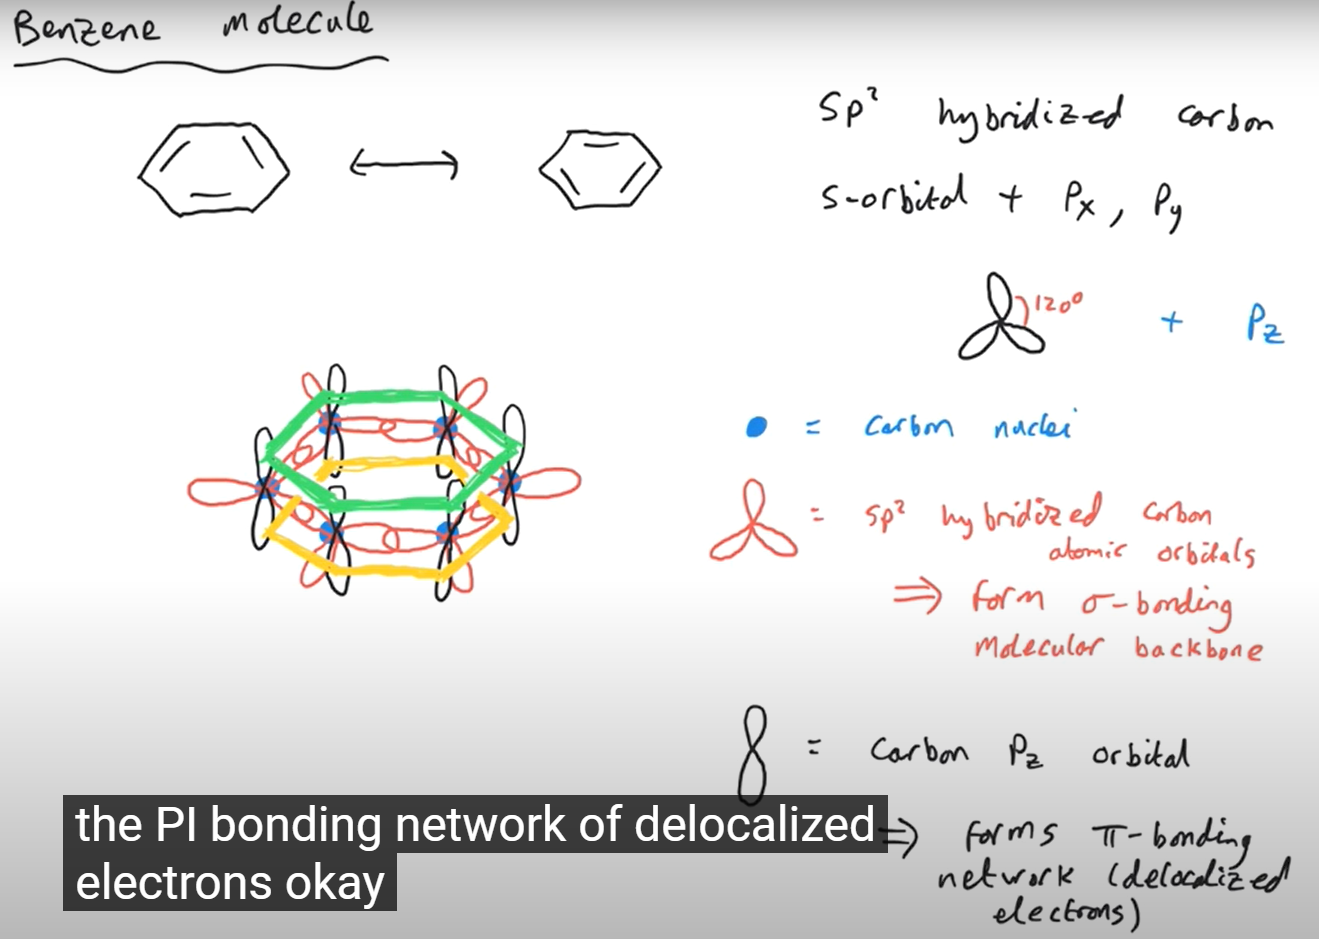 Benzene molecule
Sp² hybridized carbon
s-orbital + Px, Py
120°
+ Pz
= carbon nuclei
= sp² hybridized carbon
atomic orbitals
⇒ form σ-bonding
molecular backbone
= carbon Pz orbital
⇒ forms π-bonding
network (delocalized
electrons)
the PI bonding network of delocalized
electrons okay